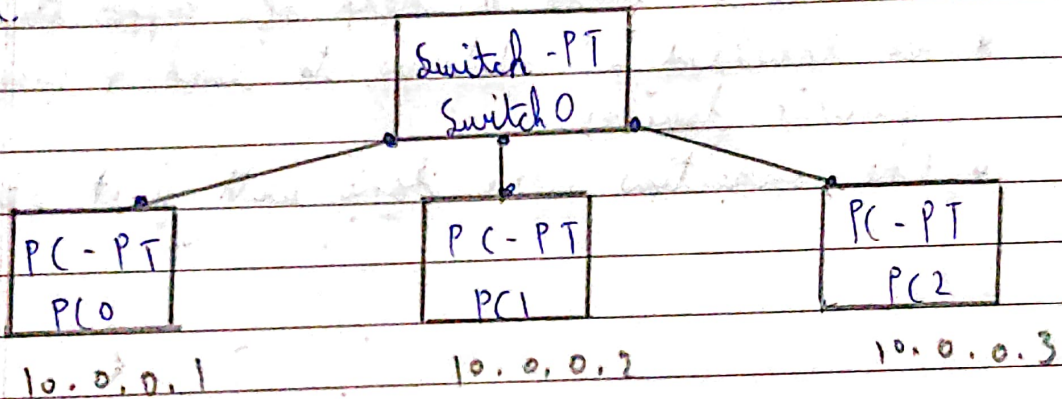 Switch-PT
Switch0
PC-PT
PC0
10.0.0.1
PC-PT
PC1
10.0.0.2
PC-PT
PC2
10.0.0.3